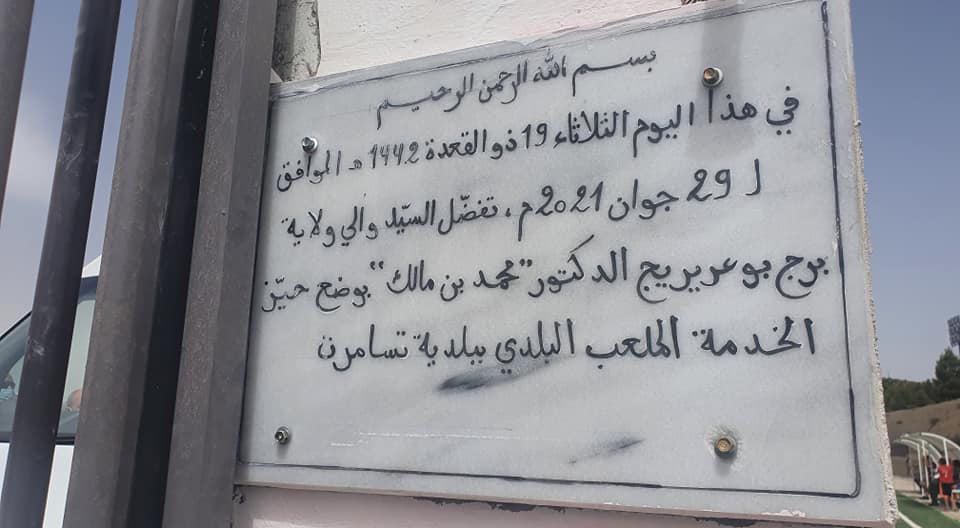 بسم الله الرحمن الرحيم
في هذا اليوم الثلاثاء 19 ذو القعدة 1442 هـ الموافق
لـ 29 جوان 2021 م، تفضّل السيّد والي ولاية
برج بوعريريج الدكتور "محمد بن مالك" بوضع حيّز
الخدمة الملعب البلدي ببلدية تسامرت